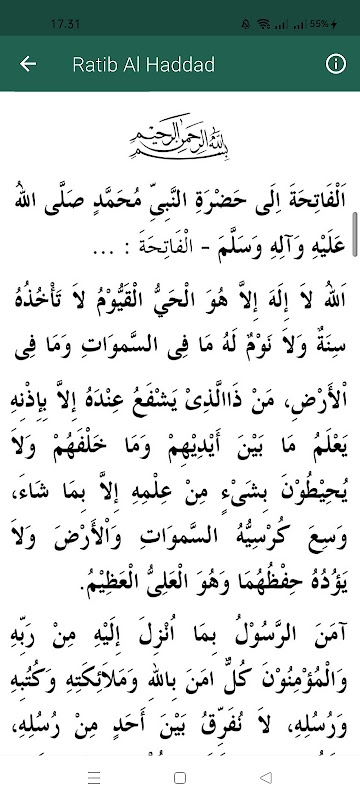 17.31
55%
Ratib Al Haddad
بسم الله الرحمن الرحيم
اَلْفَاتِحَةَ اِلَى حَضْرَةِ النَّبِيِّ مُحَمَّدٍ صَلَّى اللهُ
عَلَيْهِ وَآلِهِ وَسَلَّمَ - الْفَاتِحَةَ : ...
اَللهُ لاَ إِلَهَ إِلاَّ هُوَ الْحَيُّ الْقَيُّوْمُ لاَ تَأْخُذُهُ
سِنَةٌ وَلاَ نَوْمٌ لَهُ مَا فِى السَّموَاتِ وَمَا فِى
اْلأَرْضِ، مَنْ ذَاالَّذِىْ يَشْفَعُ عِنْدَهُ إِلاَّ بِإِذْنِهِ
يَعْلَمُ مَا بَيْنَ أَيْدِيْهِمْ وَمَا خَلْفَهُمْ وَلاَ
يُحِيْطُوْنَ بِشَيْءٍ مِنْ عِلْمِهِ إِلاَّ بِمَا شَاءَ،
وَسِعَ كُرْسِيُّهُ السَّموَاتِ وَاْلأَرْضَ وَلاَ
يَؤُدُهُ حِفْظُهُمَا وَهُوَ الْعَلِيُّ الْعَظِيْمُ.
آمَنَ الرَّسُوْلُ بِمَا اُنْزِلَ إِلَيْهِ مِنْ رَبِّهِ
وَالْمُؤْمِنُوْنَ كُلٌّ امَنَ بِاللهِ وَمَلاَئِكَتِهِ وَكُتُبِهِ
وَرُسُلِهِ، لاَ نُفَرِّقُ بَيْنَ أَحَدٍ مِنْ رُسُلِهِ،